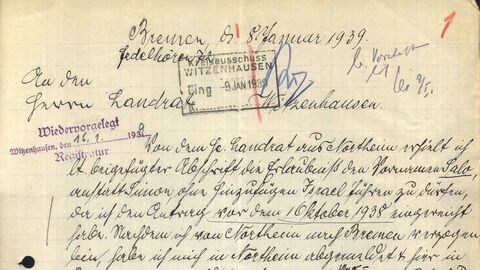 Bremen, d. 8 Januar 1939.
Fedelhören 74
1
Kreisausschuss
WITZENHAUSEN
Eing. 9. JAN 1939
An den
Herrn Landrat
Witzenhausen.
Wiedervorgelegt
Witzenhausen, den 16. 1. 1939
Registratur
Von dem H. Landrat aus Northeim erhielt ich
lt. beigefügter Abschrift die Erlaubniß den Vornamen Salo,
anstatt Simon ohne hinzufügen Israel führen zu dürfen,
da ich den Antrag vor dem 1 Oktober 1938 eingereicht
habe. Nachdem ich von Northeim nach Bremen verzogen
bin, habe ich mich in Northeim abgemeldet & hier in